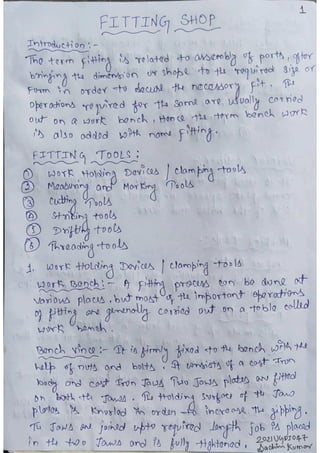 1
FITTING SHOP
Introduction:-
The term fitting is related to assembly of ports, after
bringing the dimension or shape to the required size or
Form in order to secure the necessary fit. The
operations required for the same are usually carried
out on a work bench, Hence the term bench work
is also added with name fitting.
FITTING TOOLS:-
① Work Holding Devices / clamping tools
② Measuring and Marking Tools
③ Cutting Tools
④ Striking tools
⑤ Drifting tools
⑥ Threading tools
1. Work Holding Devices / clamping tools
Work Bench:- A fitting process can be done at
various places, but most of the important operations
of fitting are generally carried out on a table called
work bench.
Bench vince:- It is firmly fixed to the bench with the
help of nuts and bolts. It consists of a cast Iron
body and cast Iron Jaws Two Jaws plates are fitted
on both the Jaws. The Holding surface of the Jaw
plates is Knurled in order to increase the gipping.
To Jaws are joined upto required length job is placed
in the two Jaws and is fully tightened.
2021UG1047
Sachin Kumar